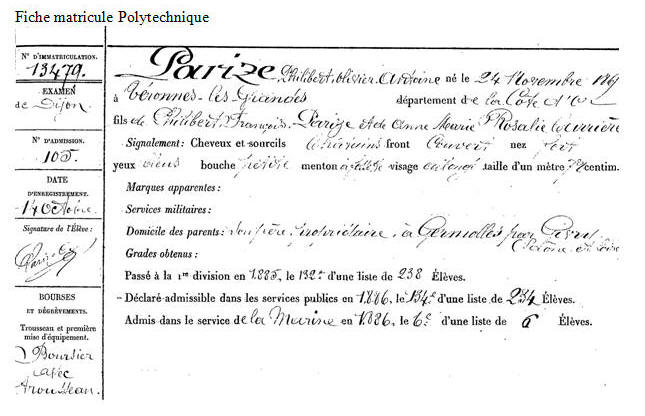 Fiche matricule Polytechnique
N° D'IMMATRICULATION.
13479.
EXAMEN
de Dijon
N° D'ADMISSION.
105.
DATE
D'ENREGISTREMENT.
14 octobre
Signature de l'Élève :
Parize
BOURSES
ET DÉGRÈVEMENTS.
Trousseau et première
mise d'équipement.
Boursier
avec
trousseau.
Parize, Philibert Olivier Antoine né le 24 Novembre
à Véronnes-les-Grandes département de la Côte d'Or
fils de Philibert François Parize et de Anne Marie Rosalie
Signalement: Cheveux et sourcils châtains front couvert nez fort
yeux bleus bouche menton à fossette visage allongé taille d'un mètre centim.
Marques apparentes :
Services militaires :
Domicile des parents: propriétaire, à Germolles par Givry
Saône et Loire
Grades obtenus :
Passé à la 1re division en 1885, le 132e d'une liste de 238 Élèves.
Déclaré admissible dans les services publics en 1886, le 134e d'une liste de 234 Élèves.
Admis dans le service de la Marine en 1886, le 6e d'une liste de 6 Élèves.